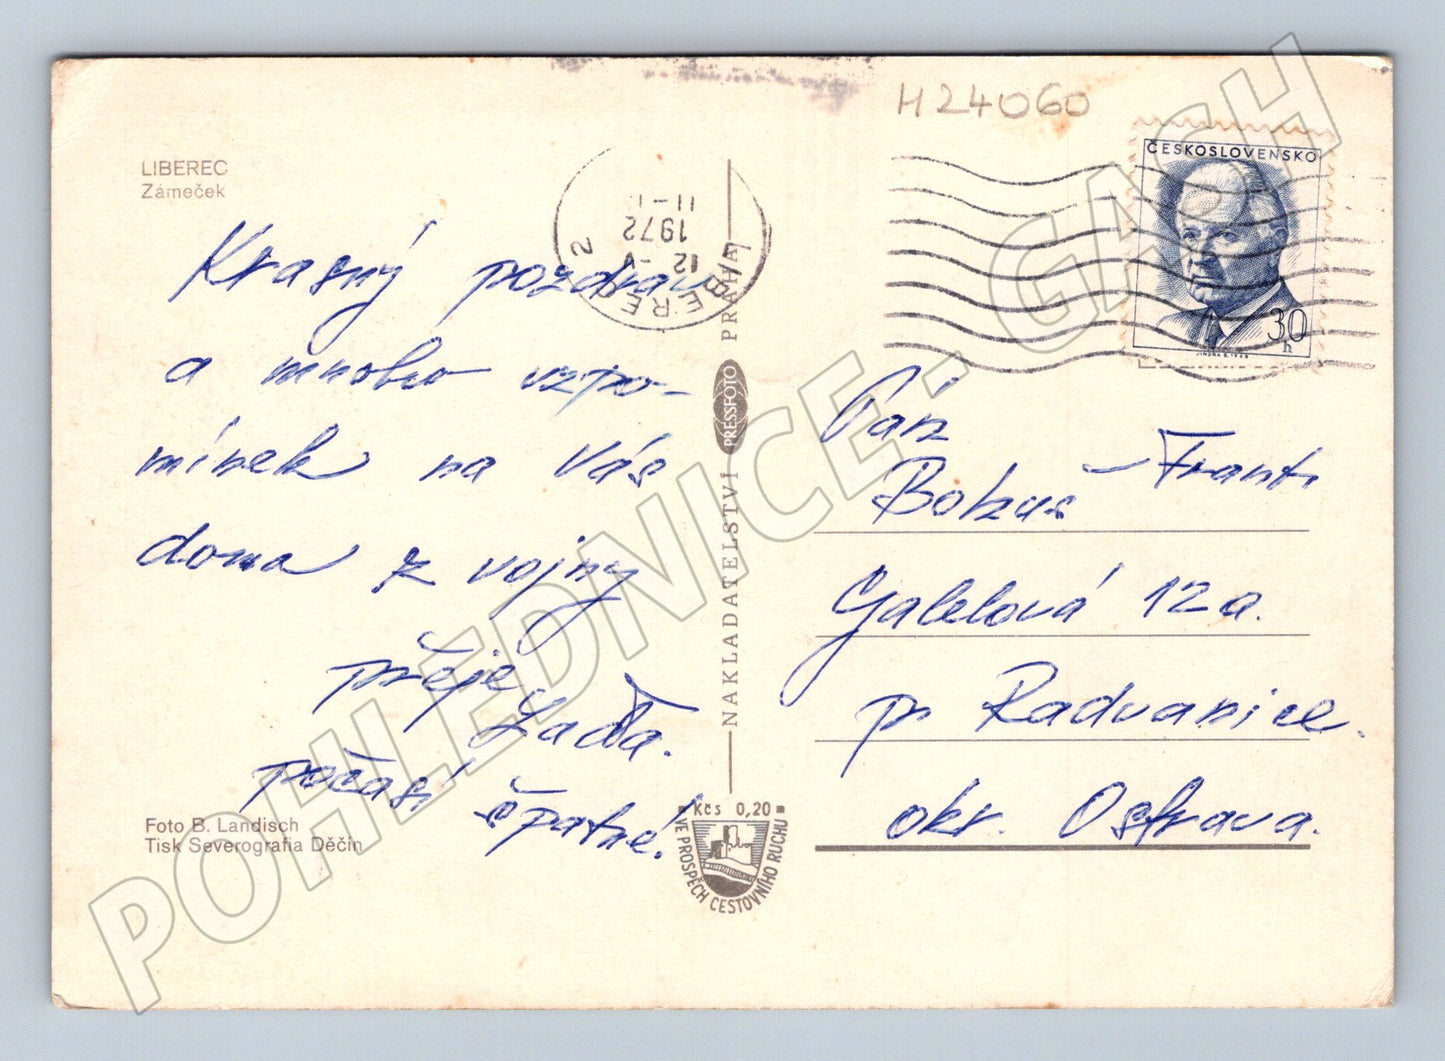 H24060
LIBEREC
Zámeček
LIBEREC 2
12.-V
1972
ČESKOSLOVENSKO
30
h
Krasný pozdrav
a mnoho vzpo-
mínek na vás
doma z vojny
přeje
Laďa.
počasí špatné!
Foto B. Landisch
Tisk Severografia Děčín
NAKLADATELSTVÍ PRESSFOTO PRAHA
Kčs 0,20
VE PROSPĚCH CESTOVNÍHO RUCHU
Pan
Frant.
12a.
pr Radvanice.
okr. Ostrava.
POHLEDNICE - GACH